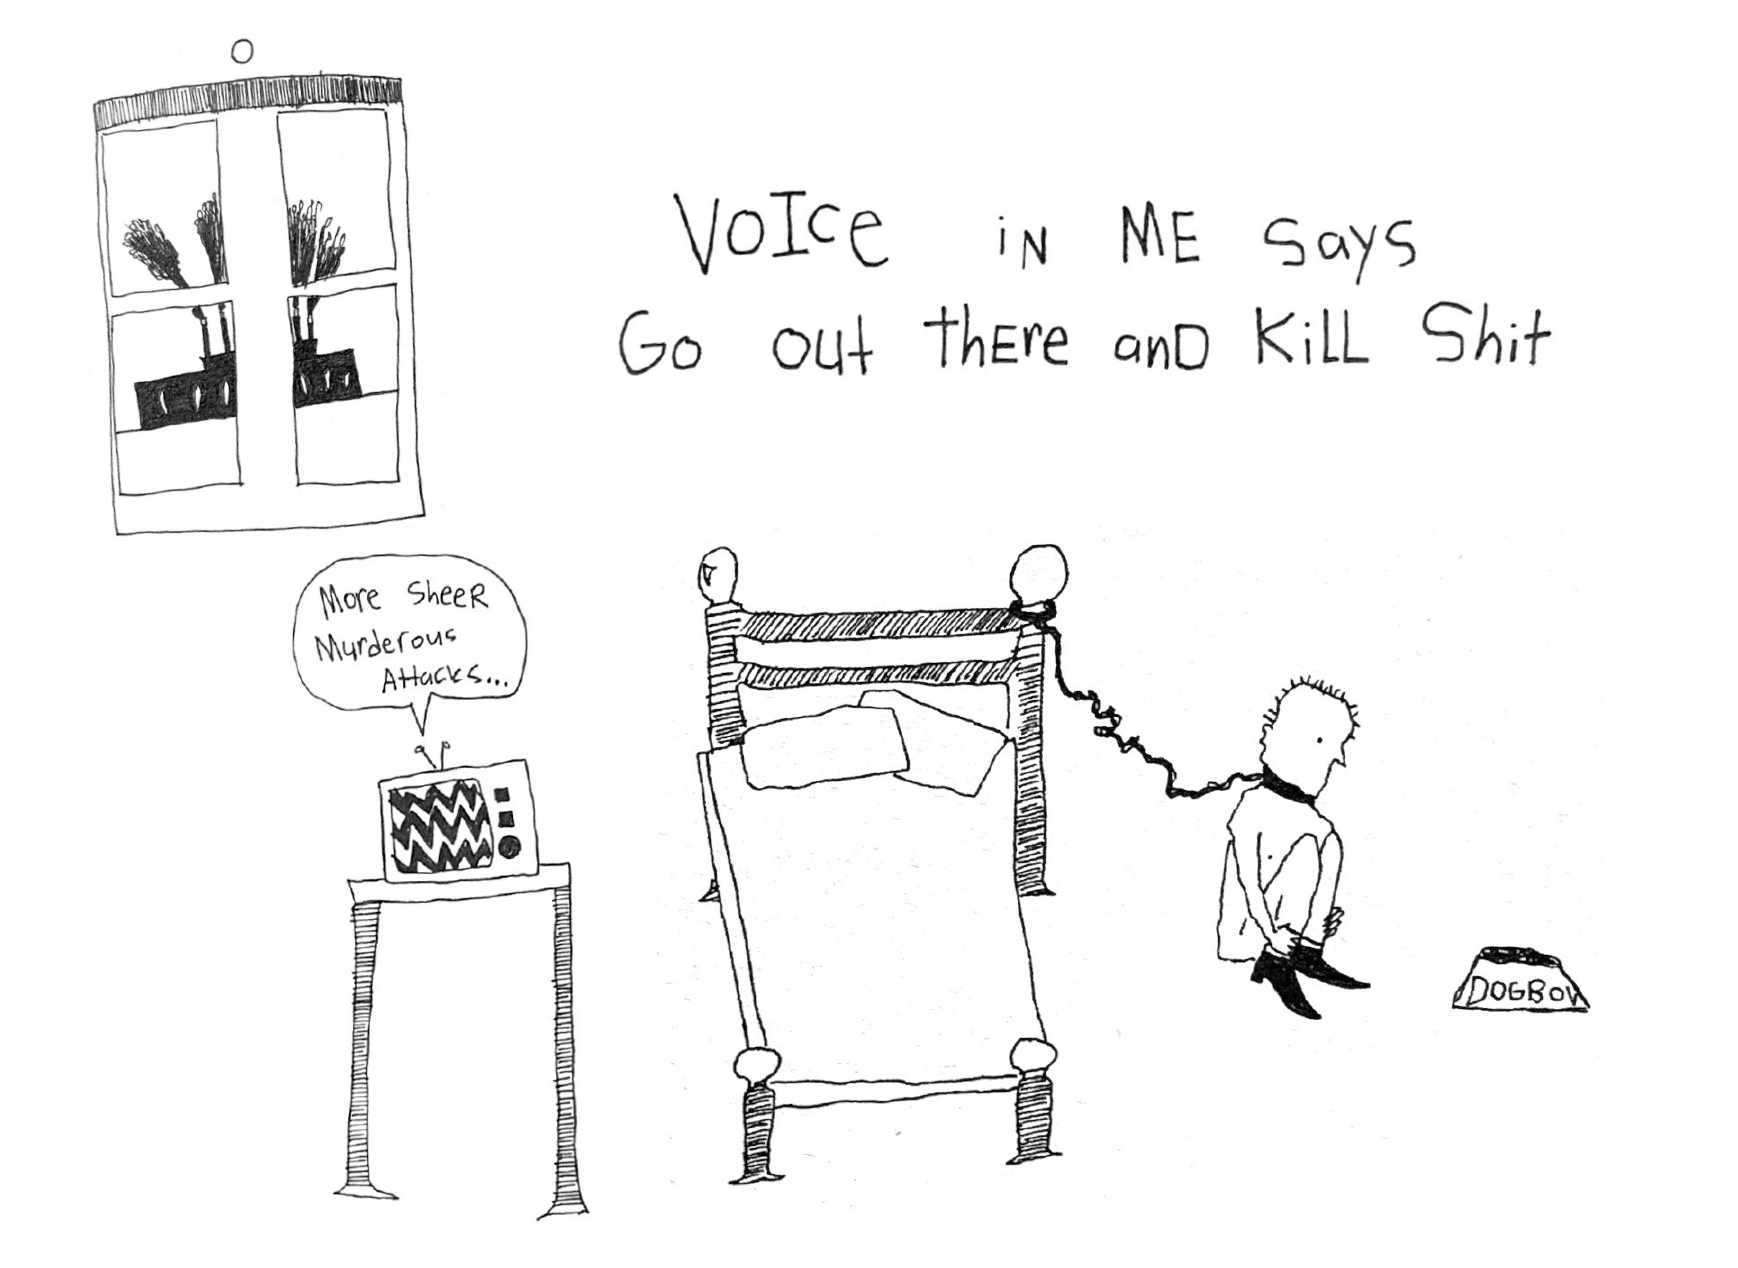 VOICe iN ME Says
Go out thEre anD KiLL Shit
More SheeR
Murderous
Attacks...
DOGBOW